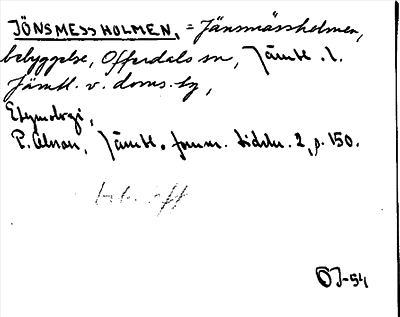 JÖNSMESSHOLMEN, = Jänsmässholmen,
bebyggelse, Offerdals sn, Jämtl. l.
Jämtl. v. doms.
Etymologi,
P. Alnæs, Jämtl. fornm. tidskr. 2, p. 150.
OJ-54